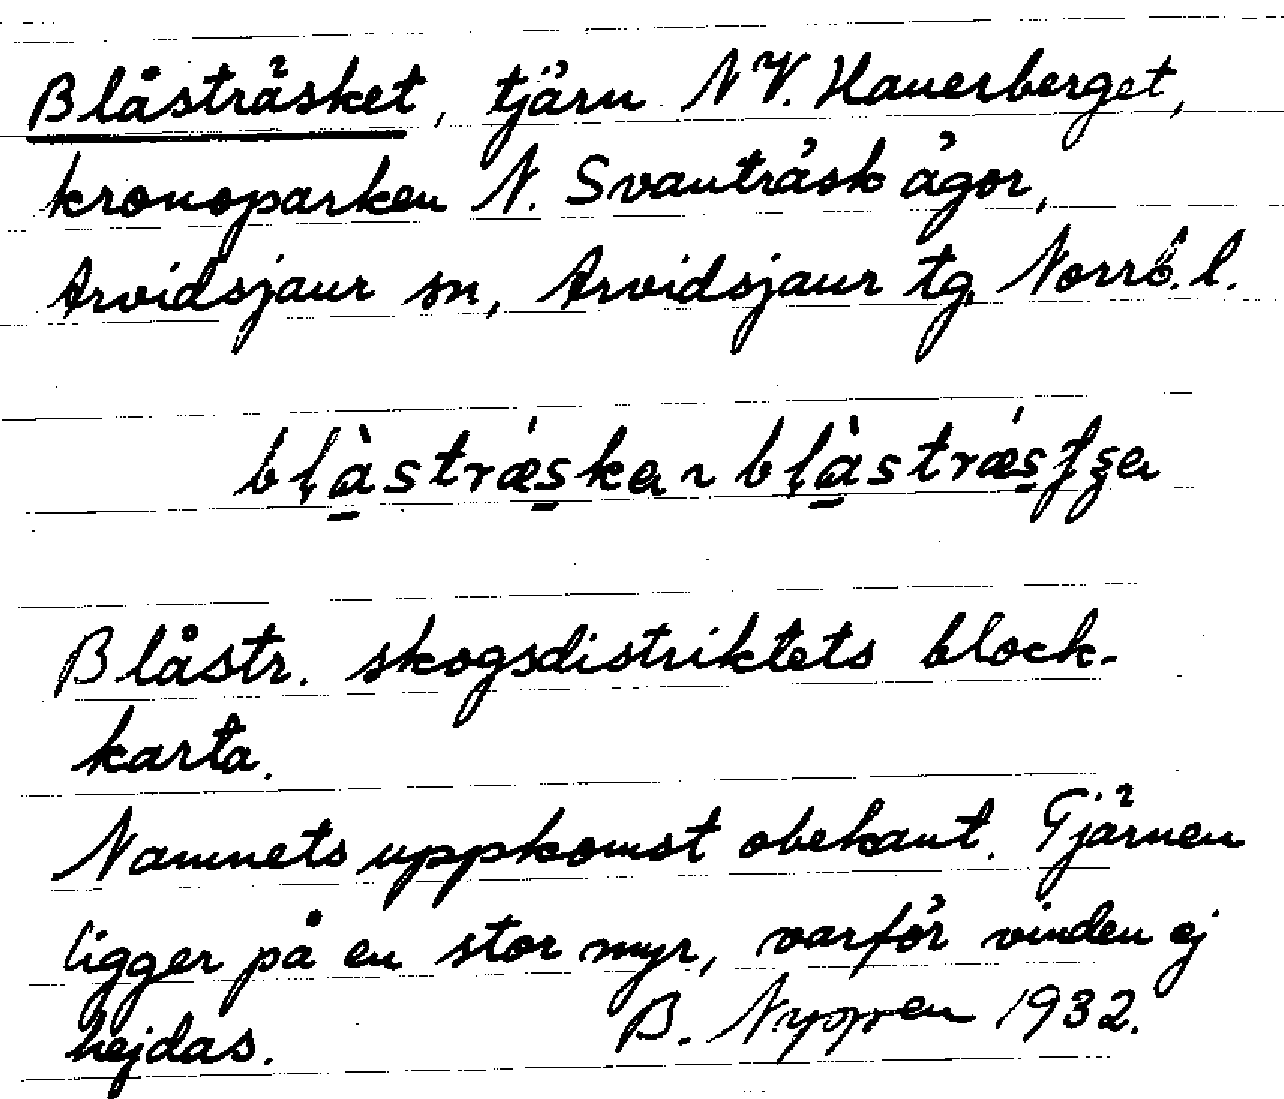 Blåsträsket, tjärn NV. Hauerberget,
kronoparken N. Svanträsk ägor,
Arvidsjaur sn, Arvidsjaur tg, Norrb. l.
blàstrǽska ~ blàstrǽsʃʂa
Blåstr. skogsdistriktets block-
karta.
Namnets uppkomst obekant. Tjärnen
ligger på en stor myr, varför vinden ej
hejdas. B. Nyppen 1932.